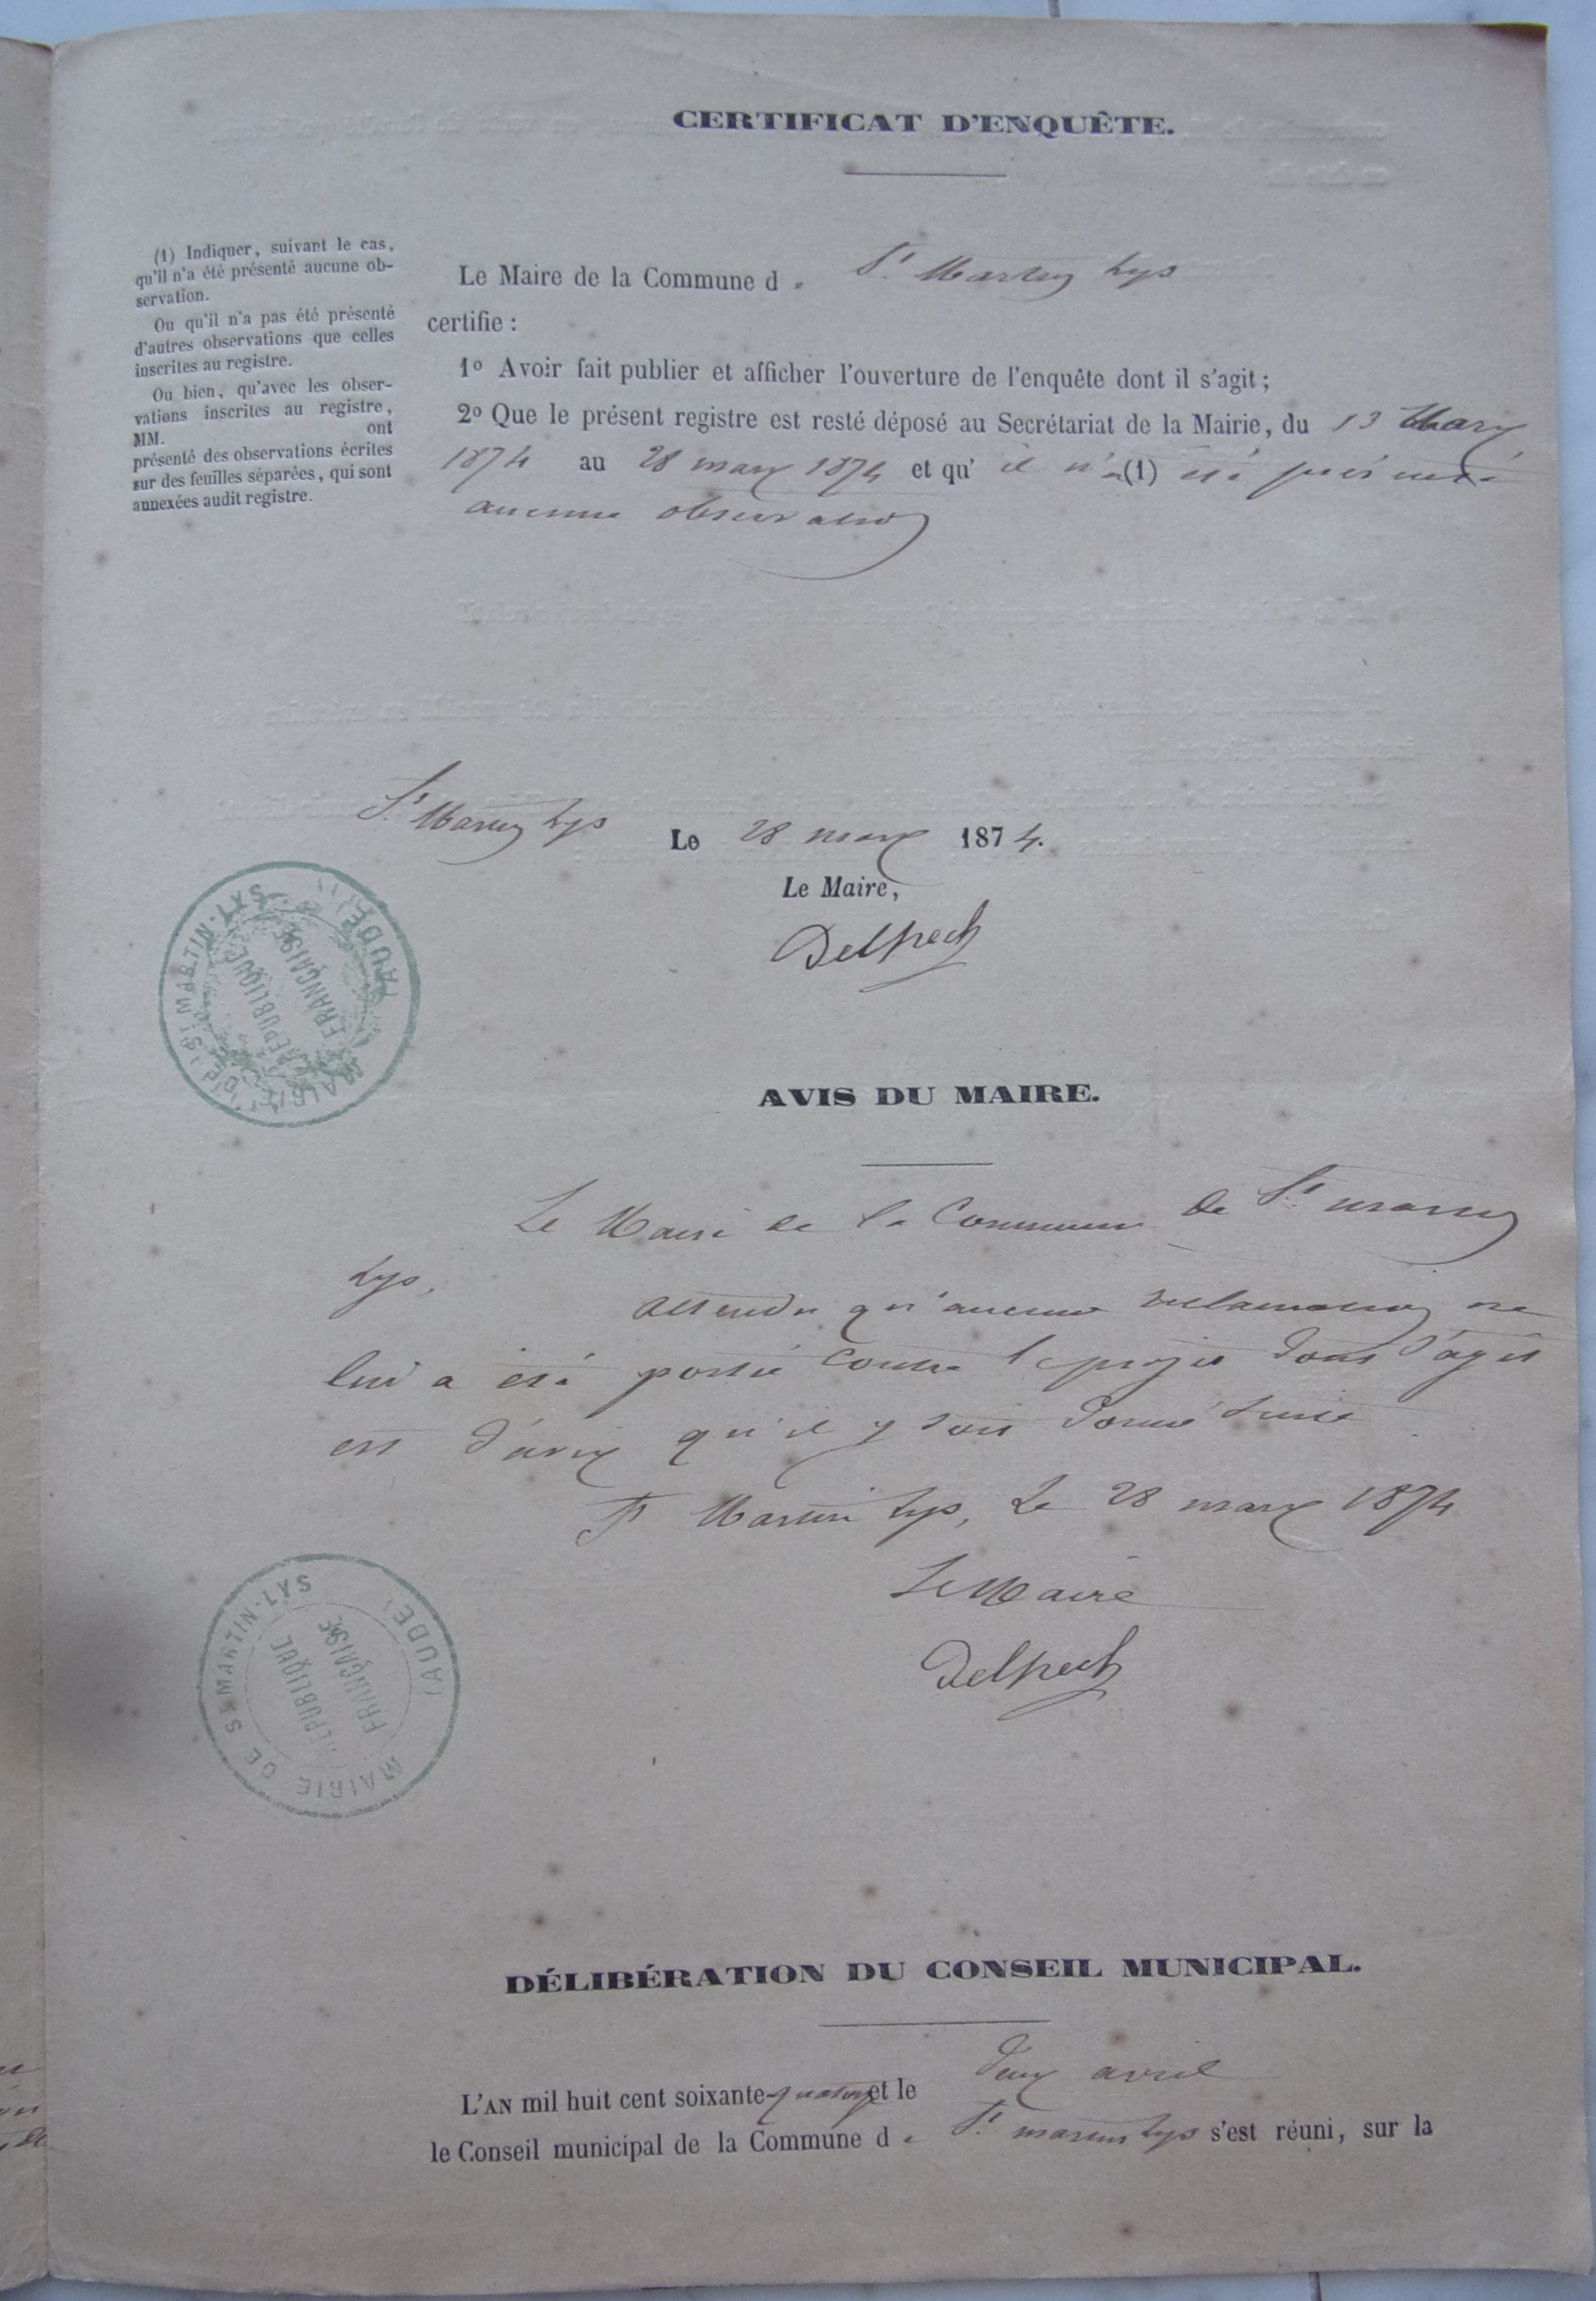 CERTIFICAT D'ENQUÊTE.
(1) Indiquer, suivant le cas,
qu'il n'a été présenté aucune ob-
servation.
Ou qu'il n'a pas été présenté
d'autres observations que celles
inscrites au registre.
Ou bien, qu'avec les obser-
vations inscrites au registre,
MM. ont
présenté des observations écrites
sur des feuilles séparées, qui sont
annexées audit registre.
Le Maire de la Commune de St Martin Lys
certifie :
1º Avoir fait publier et afficher l'ouverture de l'enquête dont il s'agit ;
2º Que le présent registre est resté déposé au Secrétariat de la Mairie, du 13 Mars
1874 au 28 mars 1874 et qu' il n'a (1) été présenté
aucune observation
St Martin Lys Le 28 mars 1874.
Le Maire,
Delpech
MAIRIE DE St MARTIN-LYS (AUDE)
RÉPUBLIQUE
FRANÇAISE
AVIS DU MAIRE.
Le Maire de la Commune de St martin
Lys,
attendu qu'aucune reclamation ne
lui a été portée contre le projet dont s'agit
est d'avis qu'il y soit donné suite
St Martin Lys, Le 28 mars 1874
Le Maire
Delpech
MAIRIE DE St MARTIN-LYS (AUDE)
RÉPUBLIQUE
FRANÇAISE
DÉLIBÉRATION DU CONSEIL MUNICIPAL.
L'AN mil huit cent soixante-quatorze et le deux avril
le Conseil municipal de la Commune de St martin Lys s'est réuni, sur la